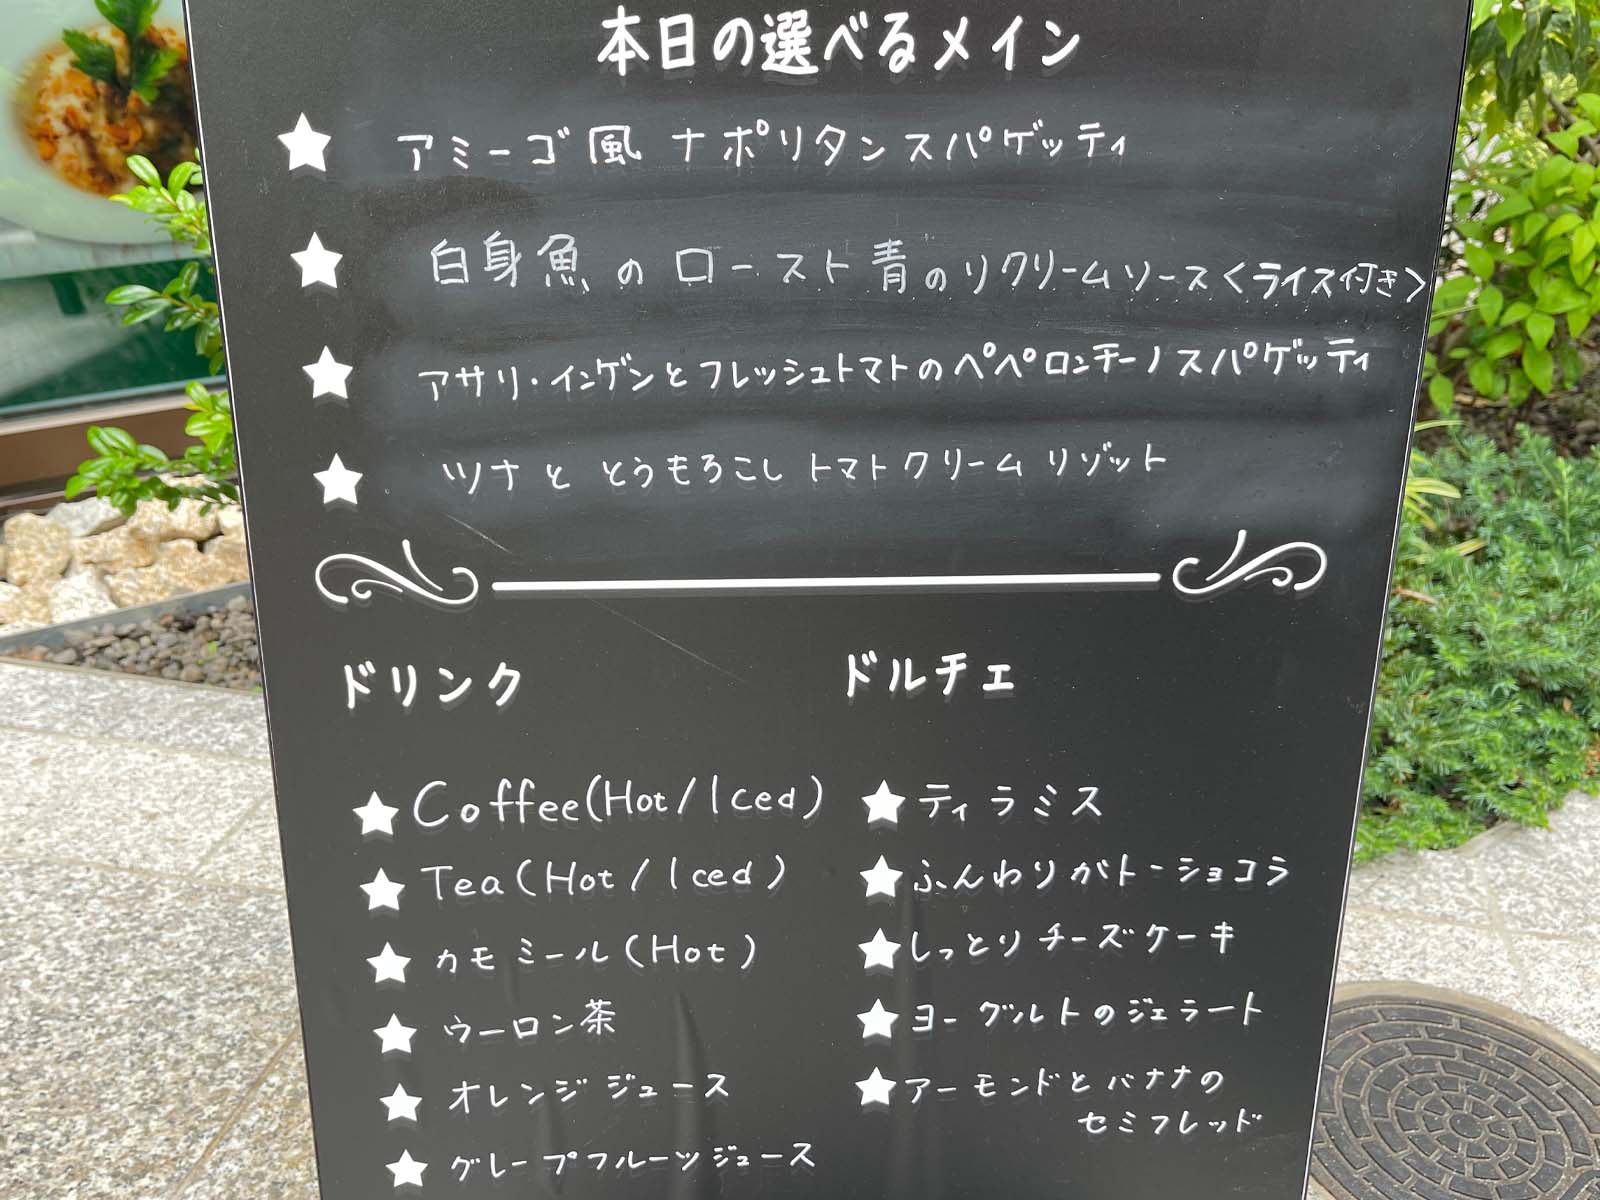 本日の選べるメイン
★ アミーゴ風 ナポリタンスパゲッティ
★ 白身魚のロースト青のりクリームソース<ライス付き>
★ アサリ・インゲンとフレッシュトマトのペペロンチーノスパゲッティ
★ ツナととうもろこしトマトクリームリゾット
ドリンク
★ Coffee(Hot/Iced)
★ Tea(Hot/Iced)
★ カモミール(Hot)
★ ウーロン茶
★ オレンジジュース
★ グレープフルーツジュース
ドルチェ
★ ティラミス
★ ふんわりガトーショコラ
★ しっとりチーズケーキ
★ ヨーグルトのジェラート
★ アーモンドとバナナの
セミフレッド